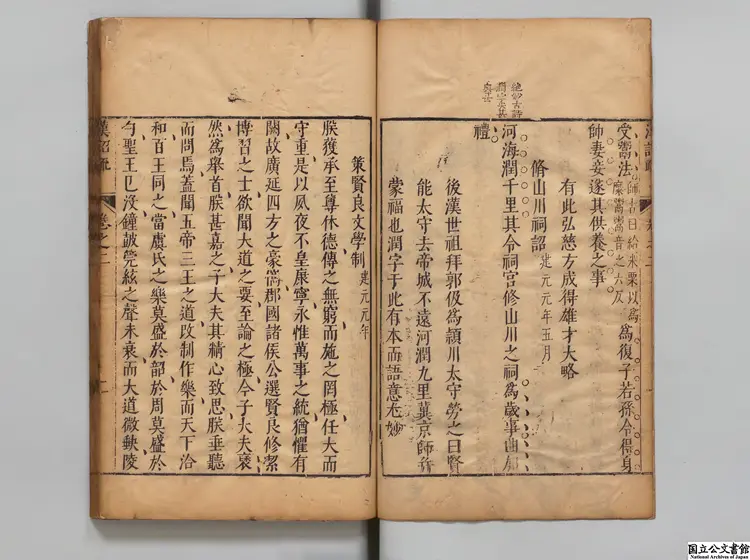 受鬻法師古曰給米粟以爲糜鬻鬻音之六反爲復子若孫令得身
帥妻妾遂其供養之事
有此弘慈方成得雄才大略
脩山川祠詔建元元年五月
河海潤千里其令祠官修山川之祠爲歲事曲加
禮
後漢世祖拜郭伋爲潁川太守勞之曰賢
能太守去帝城不遠河潤九里冀京師并
蒙福也潤字于此有本而語意尤妙
策賢良文學制建元元年
朕獲承至尊休德傳之無窮而施之罔極任大而
守重是以夙夜不皇康寧永惟萬事之統猶懼有
闕故廣延四方之豪儁郡國諸侯公選賢良修絜
博習之士欲聞大道之要至論之極今子大夫褎
然爲舉首朕甚嘉之子大夫其精心致思朕垂聽
而問焉蓋聞五帝三王之道改制作樂而天下洽
和百王同之當虞氏之樂莫盛於韶於周莫盛於
勺聖王已沒鐘鼓筦絃之聲未衰而大道微缺陵
漢詔疏 卷之二
国立公文書館
National Archives of Japan